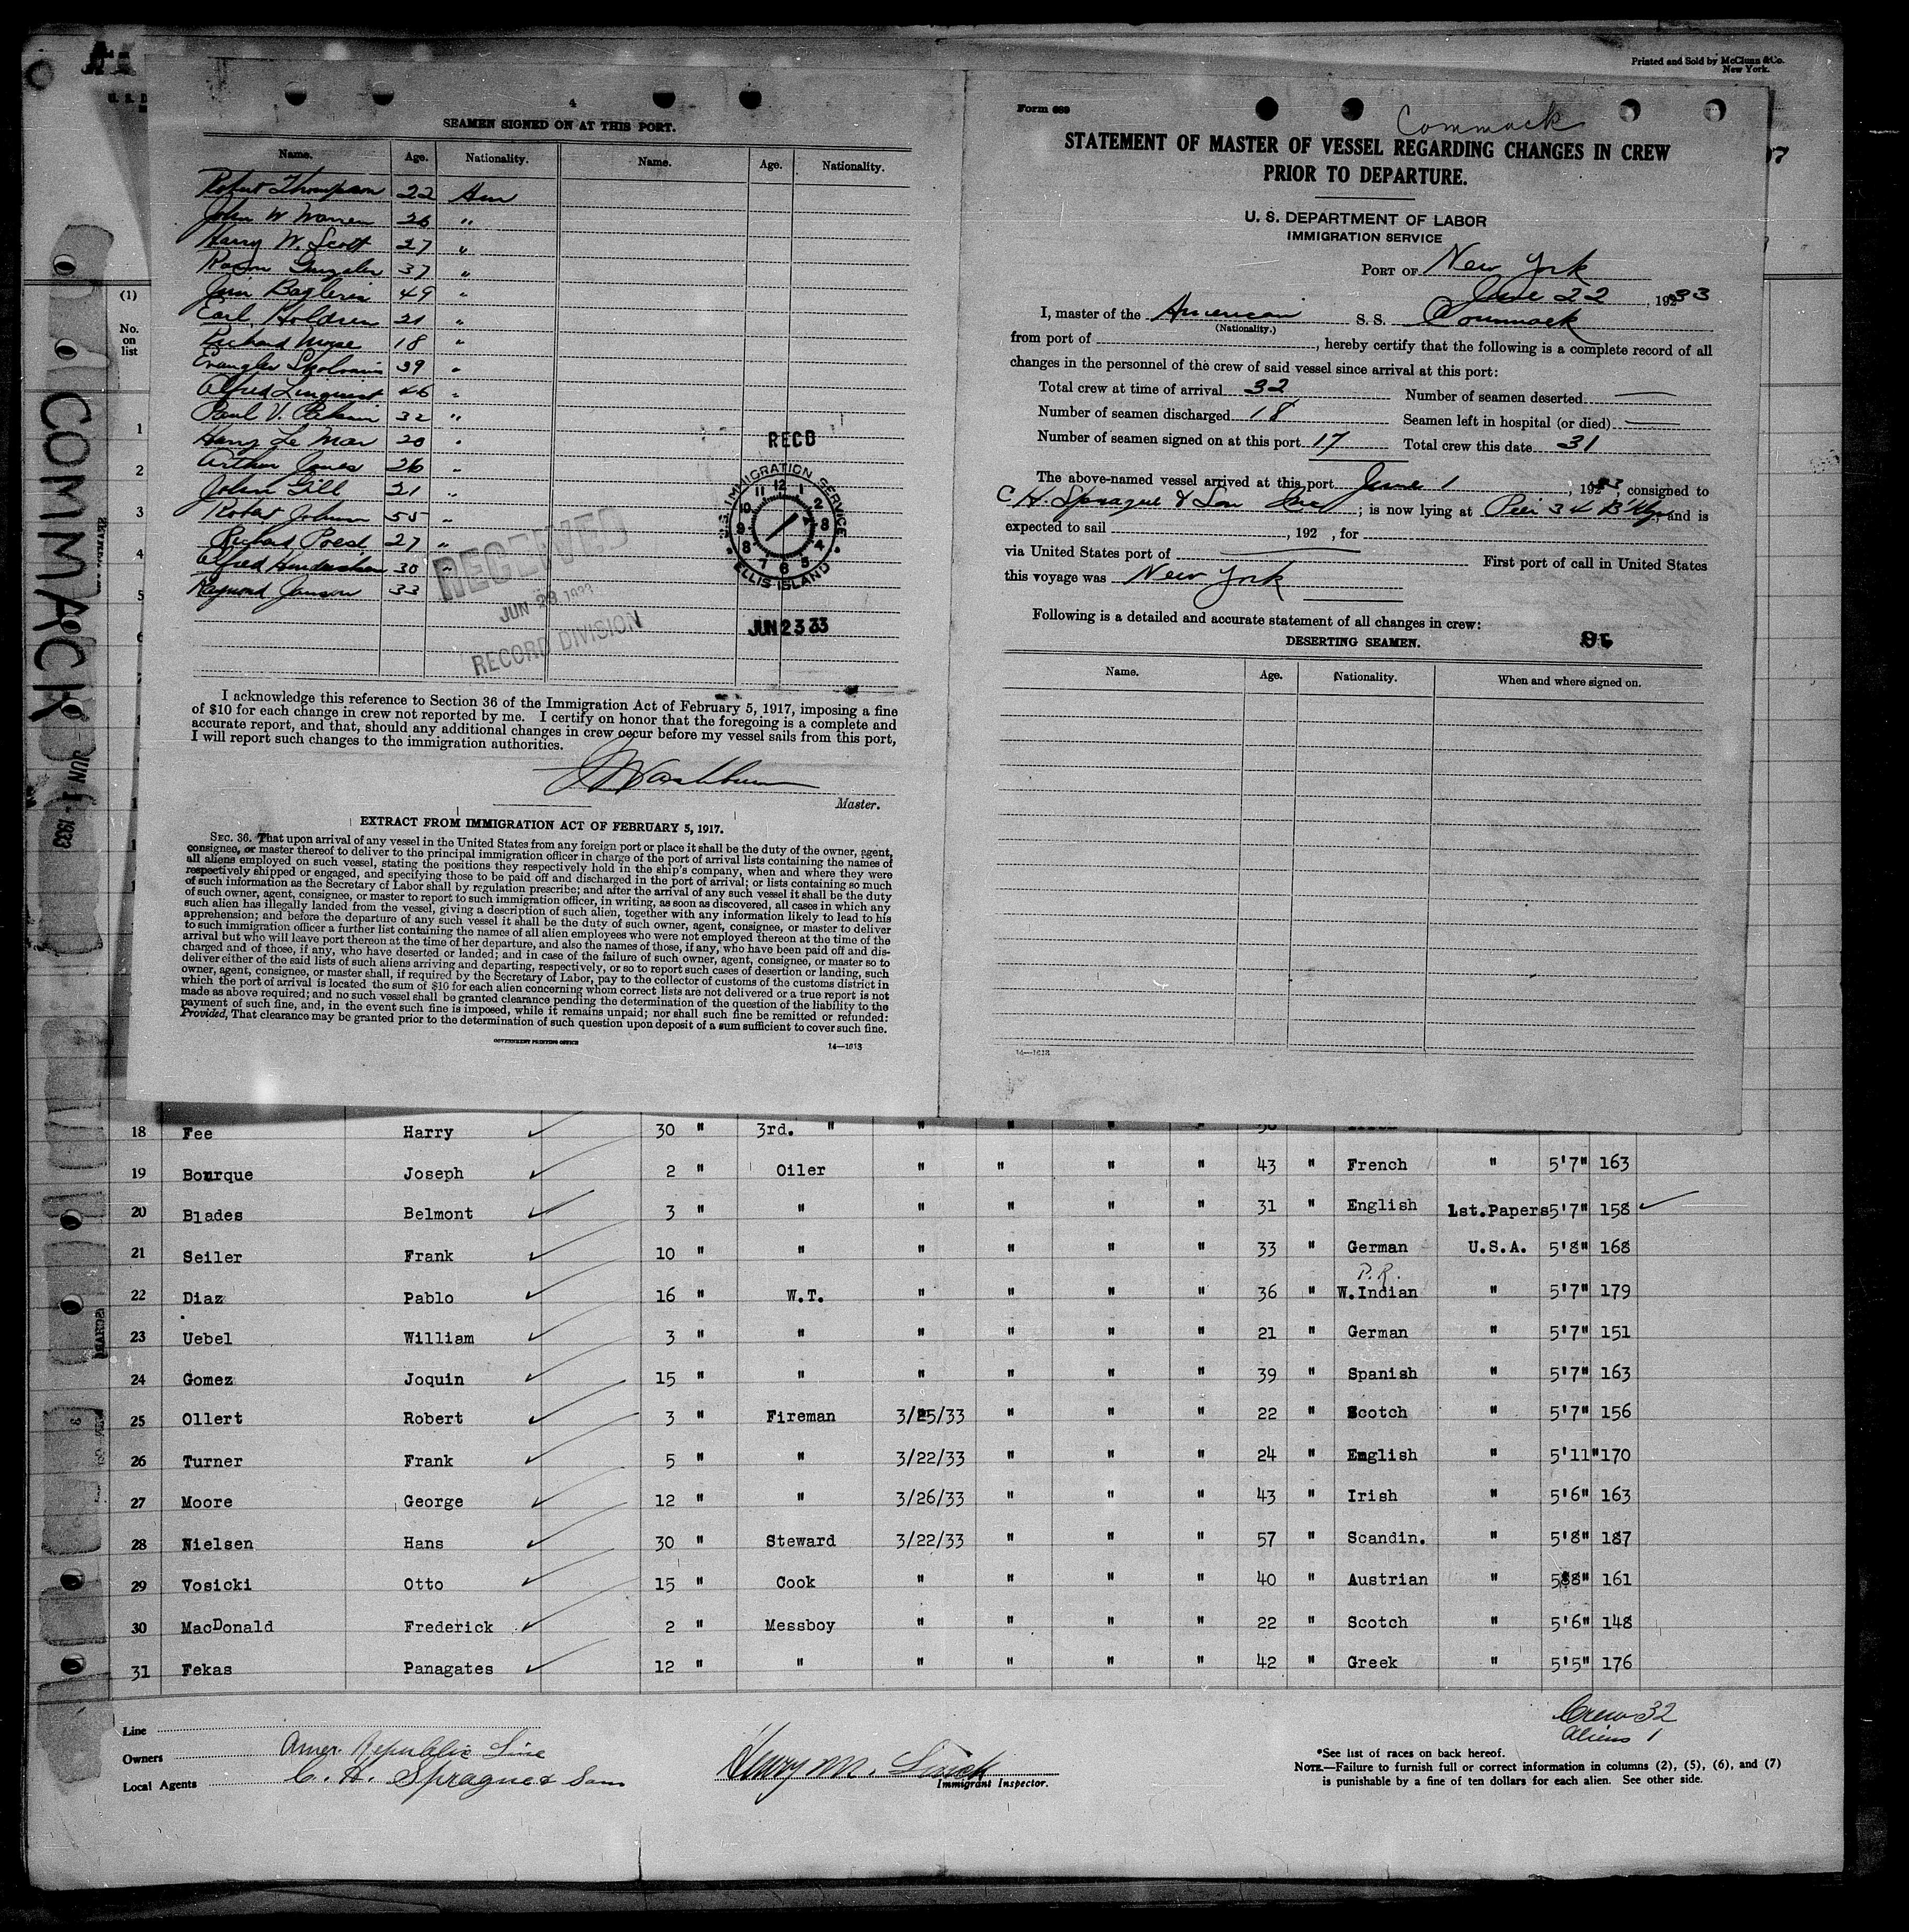 Printed and Sold by McClunn & Co.
New York.
4
SEAMEN SIGNED ON AT THIS PORT.
Name. Age. Nationality. Name. Age. Nationality.
Robert Thompson 22 Am
John W Warren 26 "
Harry W. Scott 27 "
37 "
Jim 49 "
Earl Holdren 21 "
Richard 18 "
39 "
Alfred Linquist 46 "
Paul V. 32 "
Harry Le Mar 20 "
Arthur Jones 26 "
John Gill 21 "
Robert Johnson 55 "
Richard 27 "
Alfred 30
Raymond 33
RECD
U.S. IMMIGRATION SERVICE
ELLIS ISLAND
JUN 23 33
RECEIVED
JUN 23 1933
RECORD DIVISION
I acknowledge this reference to Section 36 of the Immigration Act of February 5, 1917, imposing a fine
of $10 for each change in crew not reported by me. I certify on honor that the foregoing is a complete and
accurate report, and that, should any additional changes in crew occur before my vessel sails from this port,
I will report such changes to the immigration authorities.
Washburn
Master.
EXTRACT FROM IMMIGRATION ACT OF FEBRUARY 5, 1917.
SEC. 36. That upon arrival of any vessel in the United States from any foreign port or place it shall be the duty of the owner, agent,
consignee, or master thereof to deliver to the principal immigration officer in charge of the port of arrival lists containing the names of
all aliens employed on such vessel, stating the positions they respectively hold in the ship's company, when and where they were
respectively shipped or engaged, and specifying those to be paid off and discharged in the port of arrival; or lists containing so much
of such information as the Secretary of Labor shall by regulation prescribe; and after the arrival of any such vessel it shall be the duty
of such owner, agent, consignee, or master to report to such immigration officer, in writing, as soon as discovered, all cases in which any
such alien has illegally landed from the vessel, giving a description of such alien, together with any information likely to lead to his
apprehension; and before the departure of any such vessel it shall be the duty of such owner, agent, consignee, or master to deliver
to such immigration officer a further list containing the names of all alien employees who were not employed thereon at the time of the
arrival but who will leave port thereon at the time of her departure, and also the names of those, if any, who have been paid off and dis-
charged and of those, if any, who have deserted or landed; and in case of the failure of such owner, agent, consignee, or master so to
deliver either of the said lists of such aliens arriving and departing, respectively, or so to report such cases of desertion or landing, such
owner, agent, consignee, or master shall, if required by the Secretary of Labor, pay to the collector of customs of the customs district in
which the port of arrival is located the sum of $10 for each alien concerning whom correct lists are not delivered or a true report is not
made as above required; and no such vessel shall be granted clearance pending the determination of the question of the liability to the
payment of such fine, and, in the event such fine is imposed, while it remains unpaid; nor shall such fine be remitted or refunded:
Provided, That clearance may be granted prior to the determination of such question upon deposit of a sum sufficient to cover such fine.
GOVERNMENT PRINTING OFFICE 14—1613
Form 689
Commack
STATEMENT OF MASTER OF VESSEL REGARDING CHANGES IN CREW
PRIOR TO DEPARTURE.
U. S. DEPARTMENT OF LABOR
IMMIGRATION SERVICE
PORT OF New York
June 22, 1933
I, master of the American S. S. Commack
(Nationality.)
from port of , hereby certify that the following is a complete record of all
changes in the personnel of the crew of said vessel since arrival at this port:
Total crew at time of arrival 32 Number of seamen deserted
Number of seamen discharged 18 Seamen left in hospital (or died)
Number of seamen signed on at this port 17 Total crew this date 31
The above-named vessel arrived at this port June 1, 1933, consigned to
C H. Sprague & Son Inc; is now lying at Pier 34 B'klyn, and is
expected to sail , 192 , for
via United States port of First port of call in United States
this voyage was New York
Following is a detailed and accurate statement of all changes in crew:
DESERTING SEAMEN.
Name. Age. Nationality. When and where signed on.
14—1613
(1)
No.
on
list
1
2
3
4
5
COMMACK
JUN 1 - 1933
18 Fee Harry 30 " 3rd. " " " " "
19 Bourque Joseph 2 " Oiler " " " " 43 " French " 5'7" 163
20 Blades Belmont 3 " " " " " " 31 " English 1st.Papers 5'7" 158
21 Seiler Frank 10 " " " " " " 33 " German U.S.A. 5'8" 168
P.R.
22 Diaz Pablo 16 " W.T. " " " " 36 " W.Indian " 5'7" 179
23 Uebel William 3 " " " " " " 21 " German " 5'7" 151
24 Gomez Joquin 15 " " " " " " 39 " Spanish " 5'7" 163
25 Ollert Robert 3 " Fireman 3/25/33 " " " 22 " Scotch " 5'7" 156
26 Turner Frank 5 " " 3/22/33 " " " 24 " English " 5'11" 170
27 Moore George 12 " " 3/26/33 " " " 43 " Irish " 5'6" 163
28 Nielsen Hans 30 " Steward 3/22/33 " " " 57 " Scandin. " 5'8" 187
29 Vosicki Otto 15 " Cook " " " " 40 " Austrian " 5'8" 161
30 MacDonald Frederick 2 " Messboy " " " " 22 " Scotch " 5'6" 148
31 Fekas Panagates 12 " " " " " " 42 " Greek " 5'5" 176
Crew 32
Aliens 1
Line
Owners Amer. Republic Line
Local Agents C. H. Sprague & Son
Henry M.
Immigrant Inspector.
*See list of races on back hereof.
NOTE.—Failure to furnish full or correct information in columns (2), (5), (6), and (7)
is punishable by a fine of ten dollars for each alien. See other side.